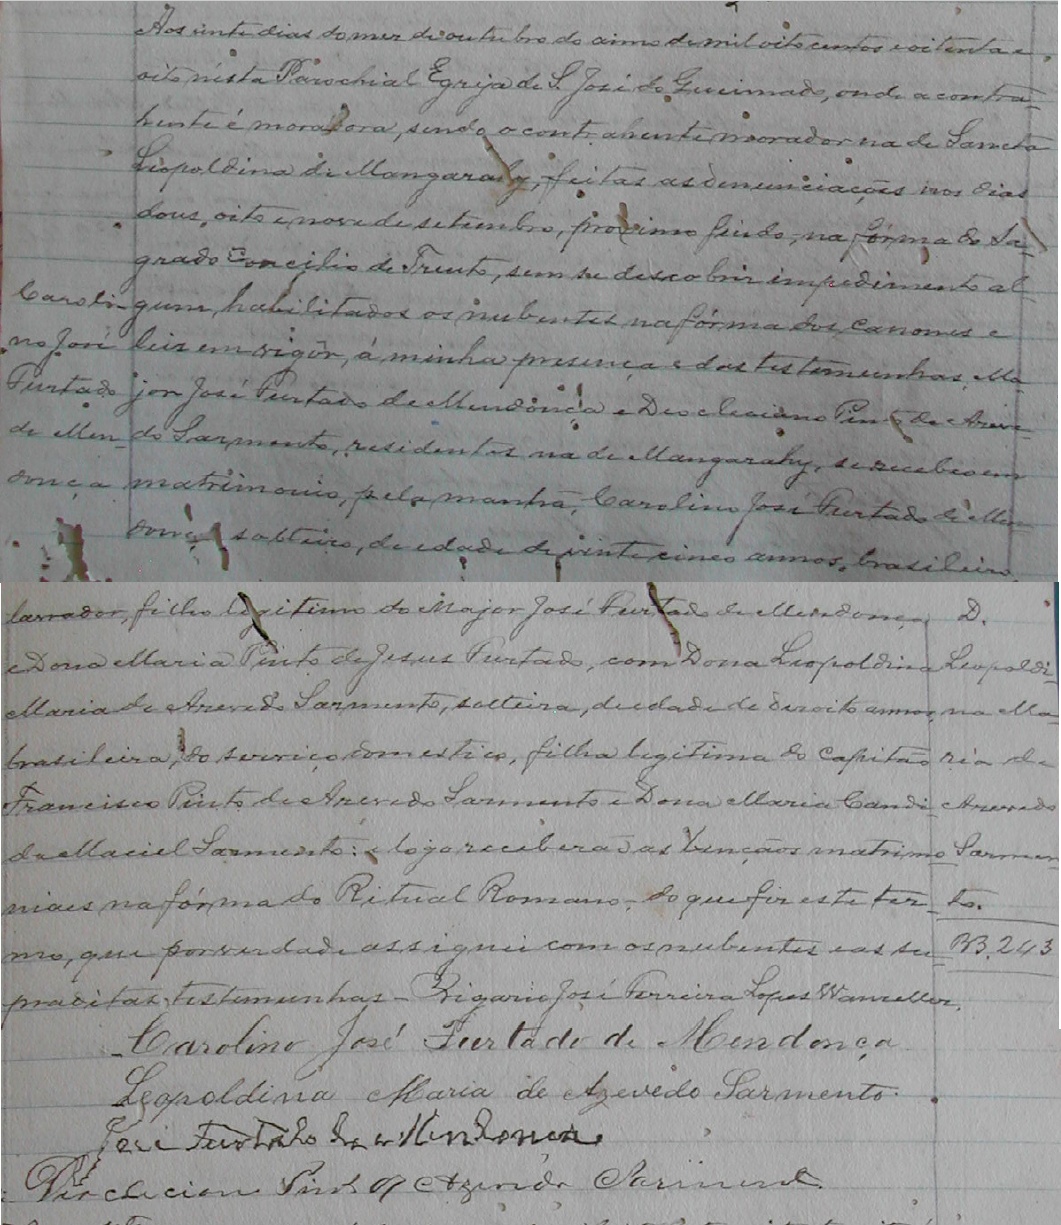 Aos vinte dias do mez de outubro do anno de mil oito centos e oitenta e
oito n'esta Parochial Egreja de S. José do Queimado, onde a contra-
hente é moradora, sendo o contrahente morador na de Sancta
Leopoldina de Mangarahy, feitas as denunciações nos dias
dous, oito e nove de setembro, proximo findo, na fórma do Sa-
grado Concilio de Trento, sem se descobrir impedimento al-
gum, habilitados os nubentes na fórma dos canones e
leis em vigôr, á minha presença e das testemunhas, Ma-
jor José Furtado de Mendonça e Deocleciano Pinto de Azeve-
do Sarmento, residentes na de Mangarahy, se recebeo em
matrimonio, pela manhã, Carolino José Furtado de Men-
donça, solteiro, de edade de vinte cinco annos, brasileiro
Caroli-
no José
Furtado
de Men-
donça
lavrador, filho legitimo do Major José Furtado de Mendonça
e Dona Maria Pinto de Jesus Furtado, com Dona Leopoldina
Maria de Azevedo Sarmento, solteira, de edade de dezoito annos,
brasileira, do serviço domestico, filha legitima do Capitão
Francisco Pinto de Azevedo Sarmento e Dona Maria Candi-
da Maciel Sarmento: e logo receberão as bençãos matrimo-
niaes na fórma do Ritual Romano, do que fiz este ter-
mo, que por verdade assignei com os nubentes e as su-
pracitas testemunhas - Vigario José Ferreira Lopes Wanzeller.
D.
Leopoldi-
na Ma-
ria de
Azevedo
Sarmen-
to.
BB. 243
Carolino José Furtado de Mendonça
Leopoldina Maria de Azevedo Sarmento
José Furtado de Mendonça
Diocleciano Pinto de Azevedo Sarmento